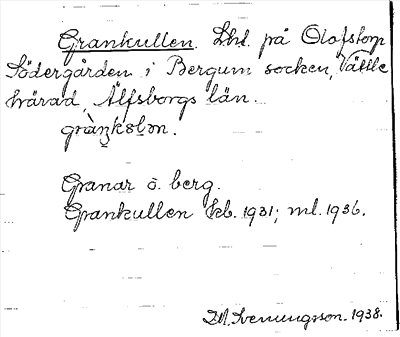 Grankullen. Lht. på Olofstorp
Södergården i Bergum socken, Vättle
härad, Älfsborgs län.
Granar o. berg.
Grankullen kb. 1931; ml. 1936.
1938.